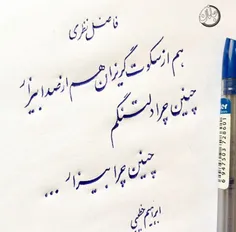 فاضل نظری
هم از سکوت گریزان هم از صدا بیزار
چنین چرا دلتنگم
چنین چرا بیزار ...
ابراهیم